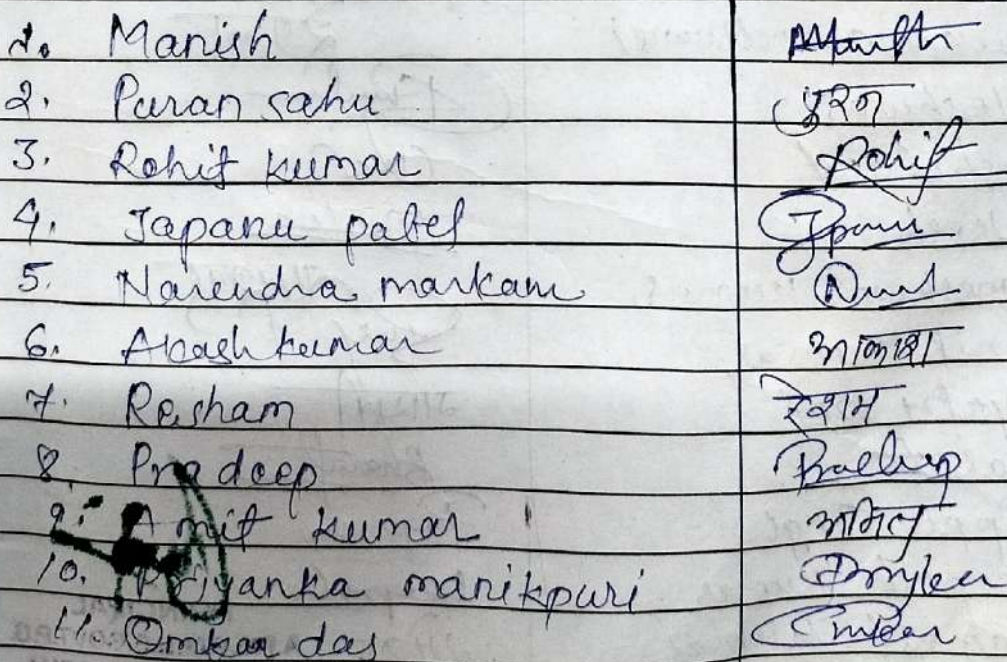 1. Manish
2. Puran sahu पुरन
3. Rohit kumar Rohit
4. Japanu patel
5. Narendra markam
6. Akash kumar आकाश
7. Resham रेशम
8. Pradeep Pradeep
9. Amit kumar अमित
10. Priyanka manikpuri
11. Omkar das Omkar